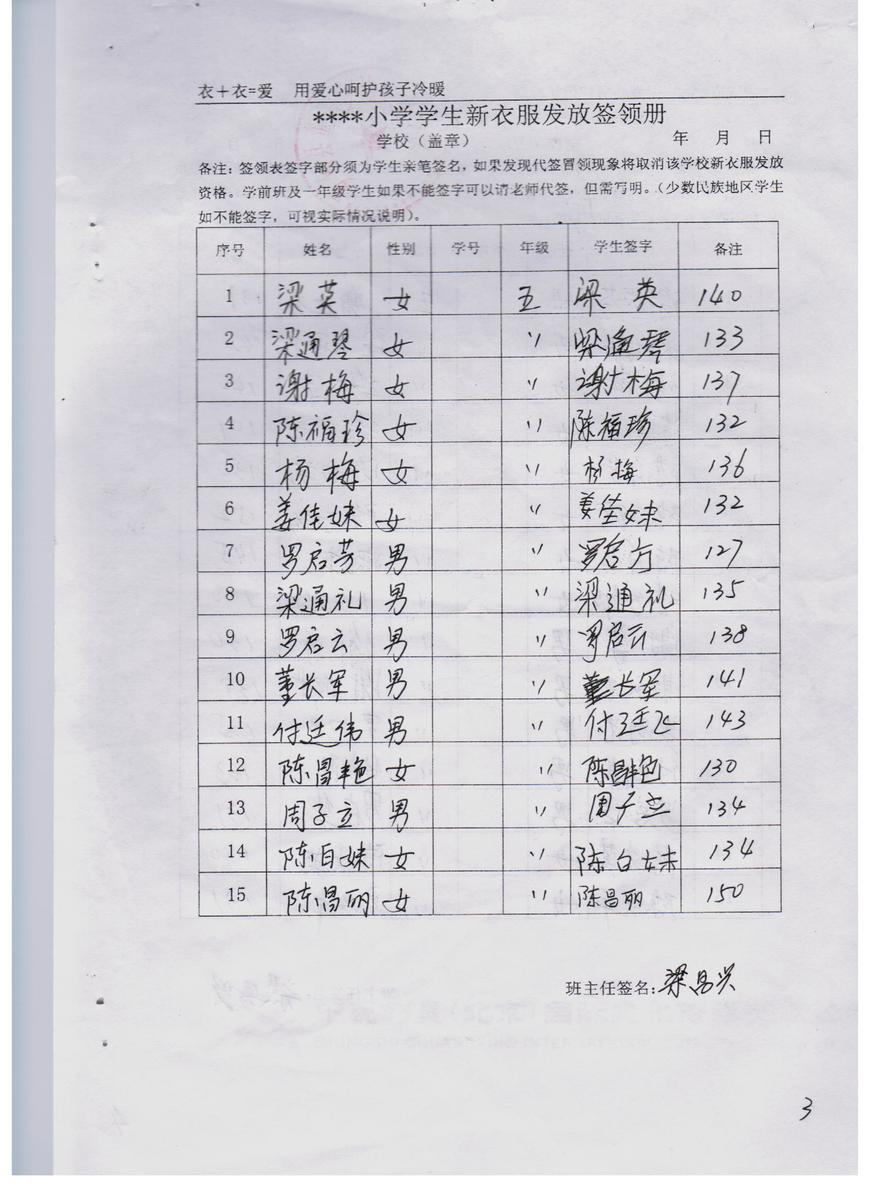 衣＋衣=爱 用爱心呵护孩子冷暖
****小学学生新衣服发放签领册
学校（盖章） 年 月 日
备注：签领表签字部分须为学生亲笔签名，如果发现代签冒领现象将取消该学校新衣服发放
资格。学前班及一年级学生如果不能签字可以请老师代签，但需写明。（少数民族地区学生
如不能签字，可视实际情况说明）。
序号 姓名 性别 学号 年级 学生签字 备注
1 梁英 女 五 梁英 140
2 梁通琴 女 〃 梁通琴 133
3 谢梅 女 〃 谢梅 137
4 陈福珍 女 〃 陈福珍 132
5 杨梅 女 〃 杨梅 136
6 姜佳妹 女 〃 姜佳妹 132
7 罗启芳 男 〃 罗启方 127
8 梁通礼 男 〃 梁通礼 135
9 罗启云 男 〃 罗启云 138
10 董长军 男 〃 董长军 141
11 付廷伟 男 〃 付廷飞 143
12 陈昌艳 女 〃 陈昌艳 130
13 周子立 男 〃 周子立 134
14 陈白妹 女 〃 陈白妹 134
15 陈昌丽 女 〃 陈昌丽 150
班主任签名：梁昌兴
3